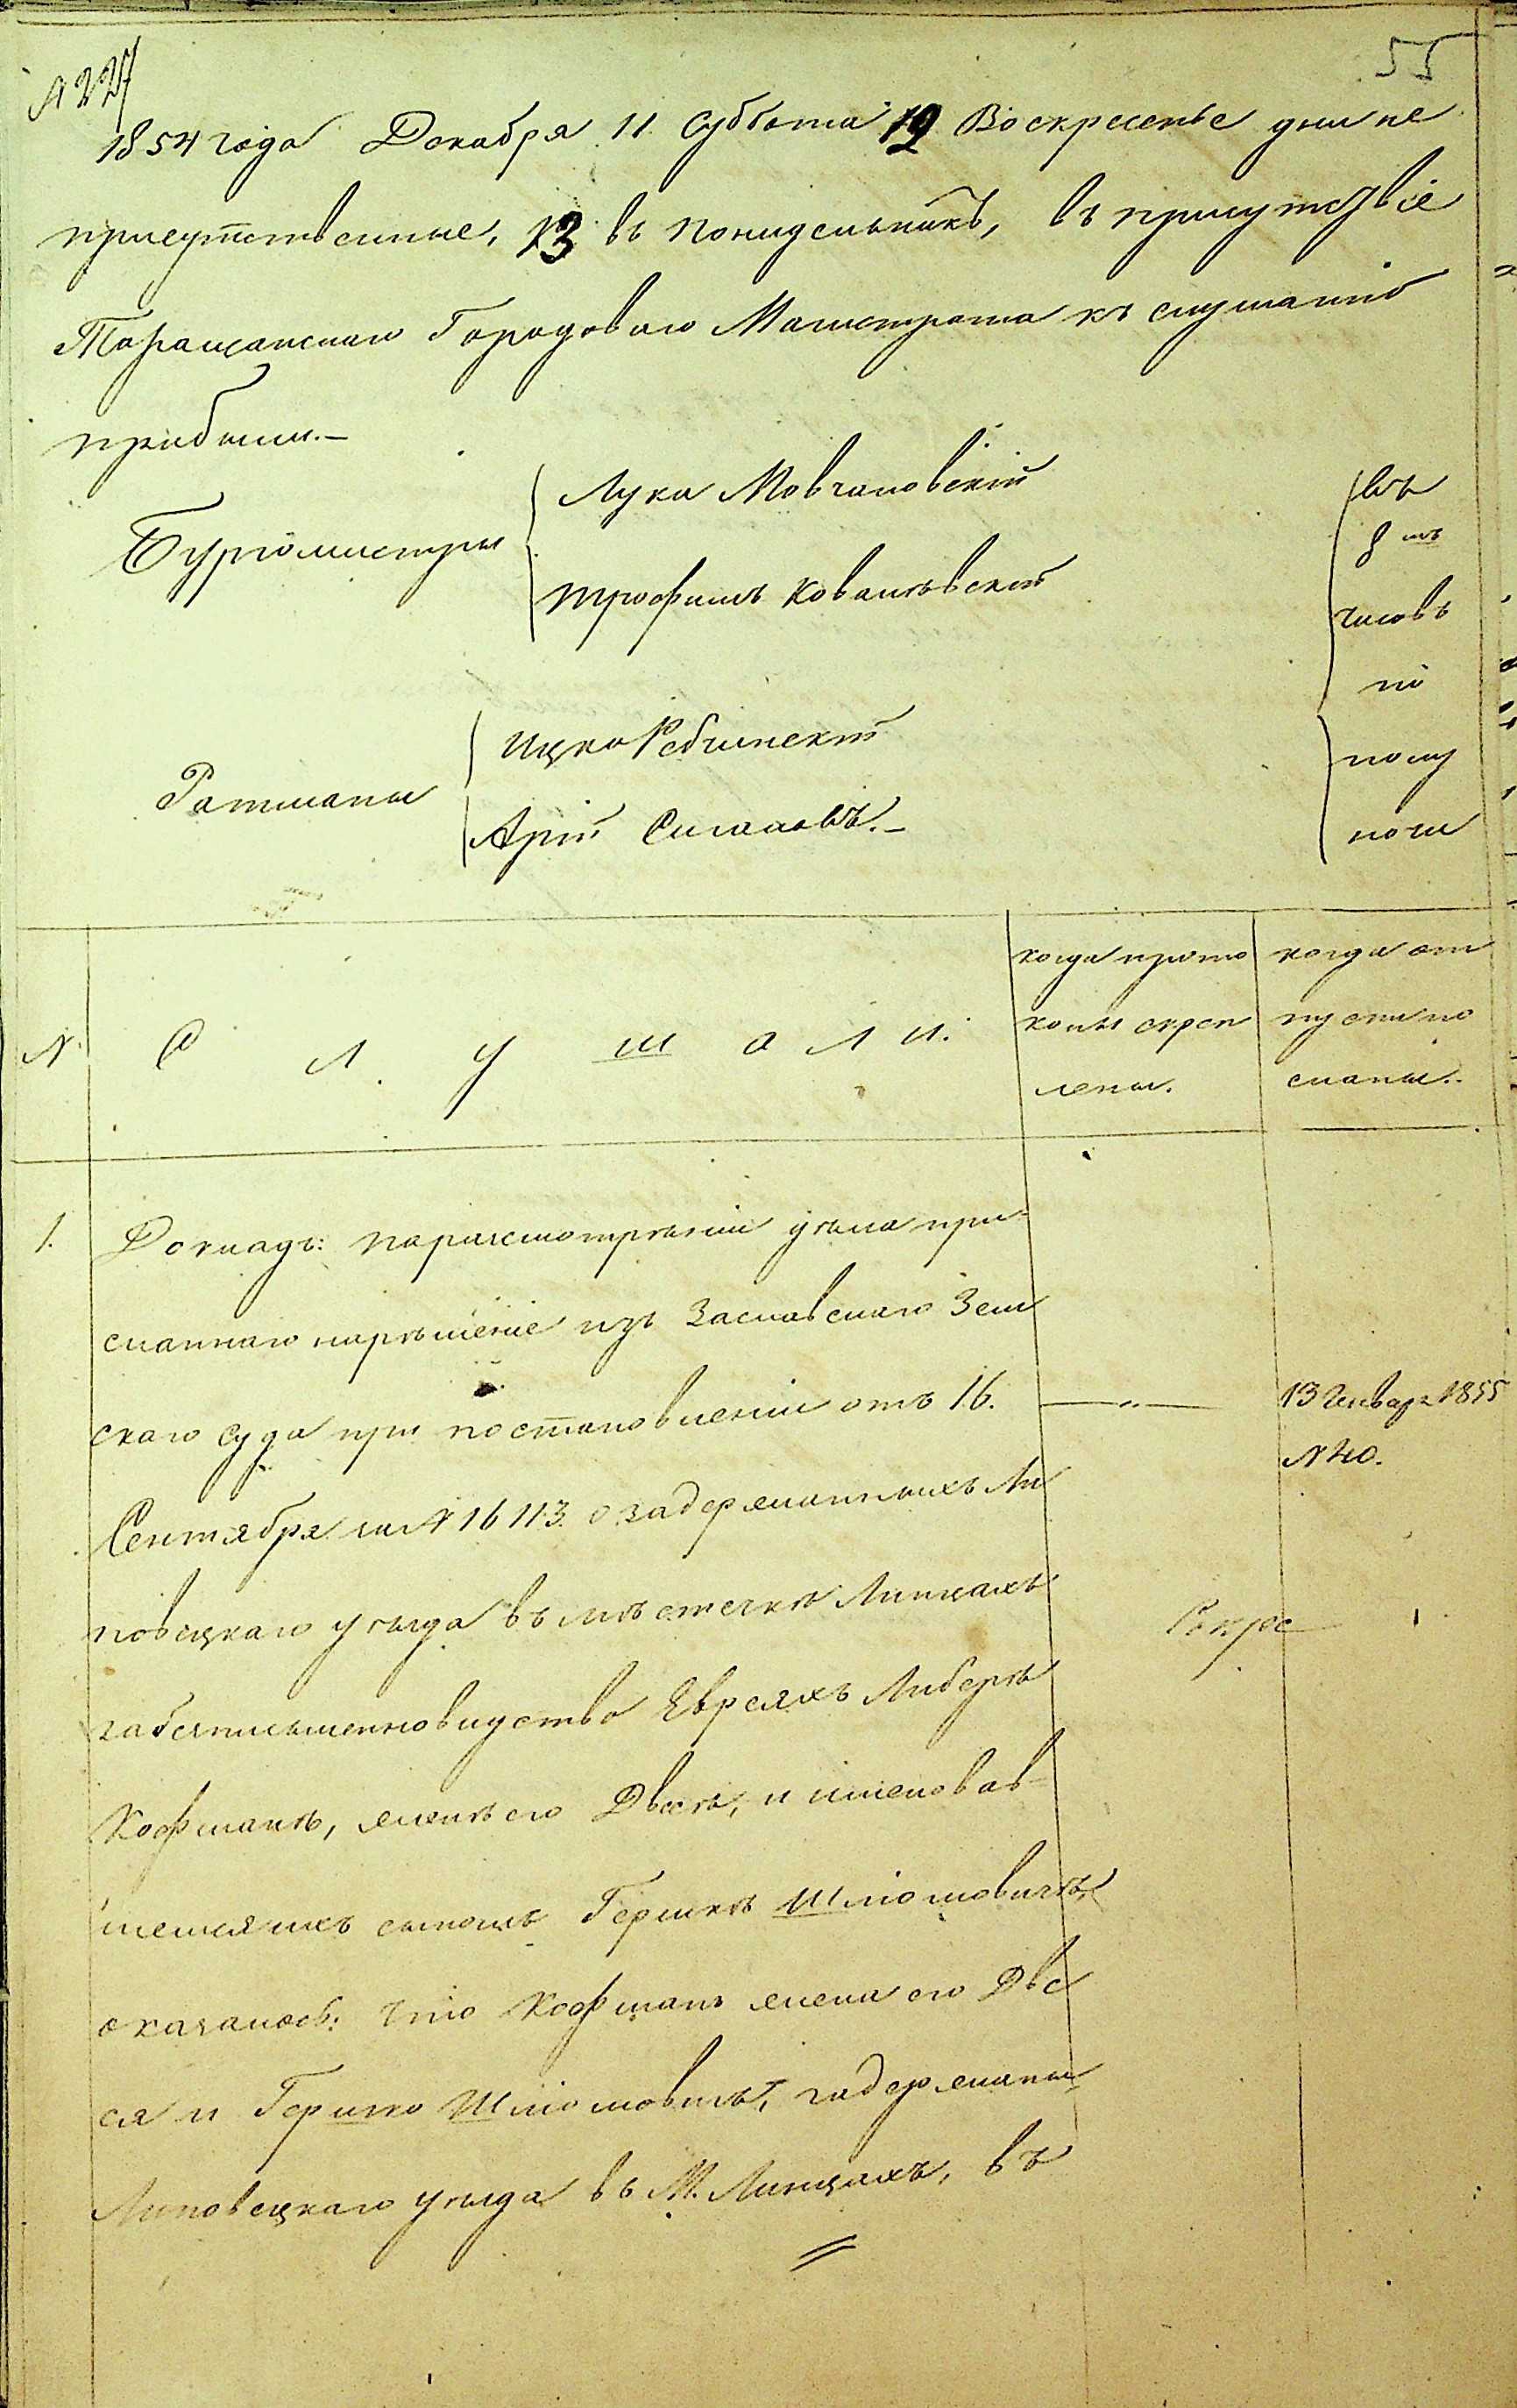 № 227
55
1854 года Декабря 11 Суббота 12 Воскресенье дни не
присутственные, 13 въ понидельникъ, въ присутствіе
Таращанскаго Городоваго Магистрата къ слушанію
прибыли.–
Бургомистры
Лука Мовчановскій
Трофимъ Ковалѣвскій
Ратманы
Ицко Рабчинскій
Арій Сигаловъ.–
въ
8 мъ
часовъ
по
полу
ночи
№
С л у ш а л и.
когда прото
колы скреп
лены.
когда от
пуски по
сланы.
1.
Докладъ: по разсмотрѣніи дѣла при-
сланнаго на рѣшеніе изъ Заславскаго Зем
скаго Суда при постановленіи отъ 16.
Сентября за № 16113. о задержанныхъ Ли
повецкаго уѣзда въ мѣстечкѣ Линцахъ
за безписьменновидство Евреяхъ Либерѣ
Кофманѣ, женѣ его Двесѣ, и именовав-
шемся ихъ сыномъ Гершкѣ Шліомовичѣ,
оказалось: что Кофманъ жена его Две
ся и Гершко Шліомовичъ, задержаны
Липовецкаго уѣзда въ М. Линцахъ, въ
13 Генваря 1855
№ 40.